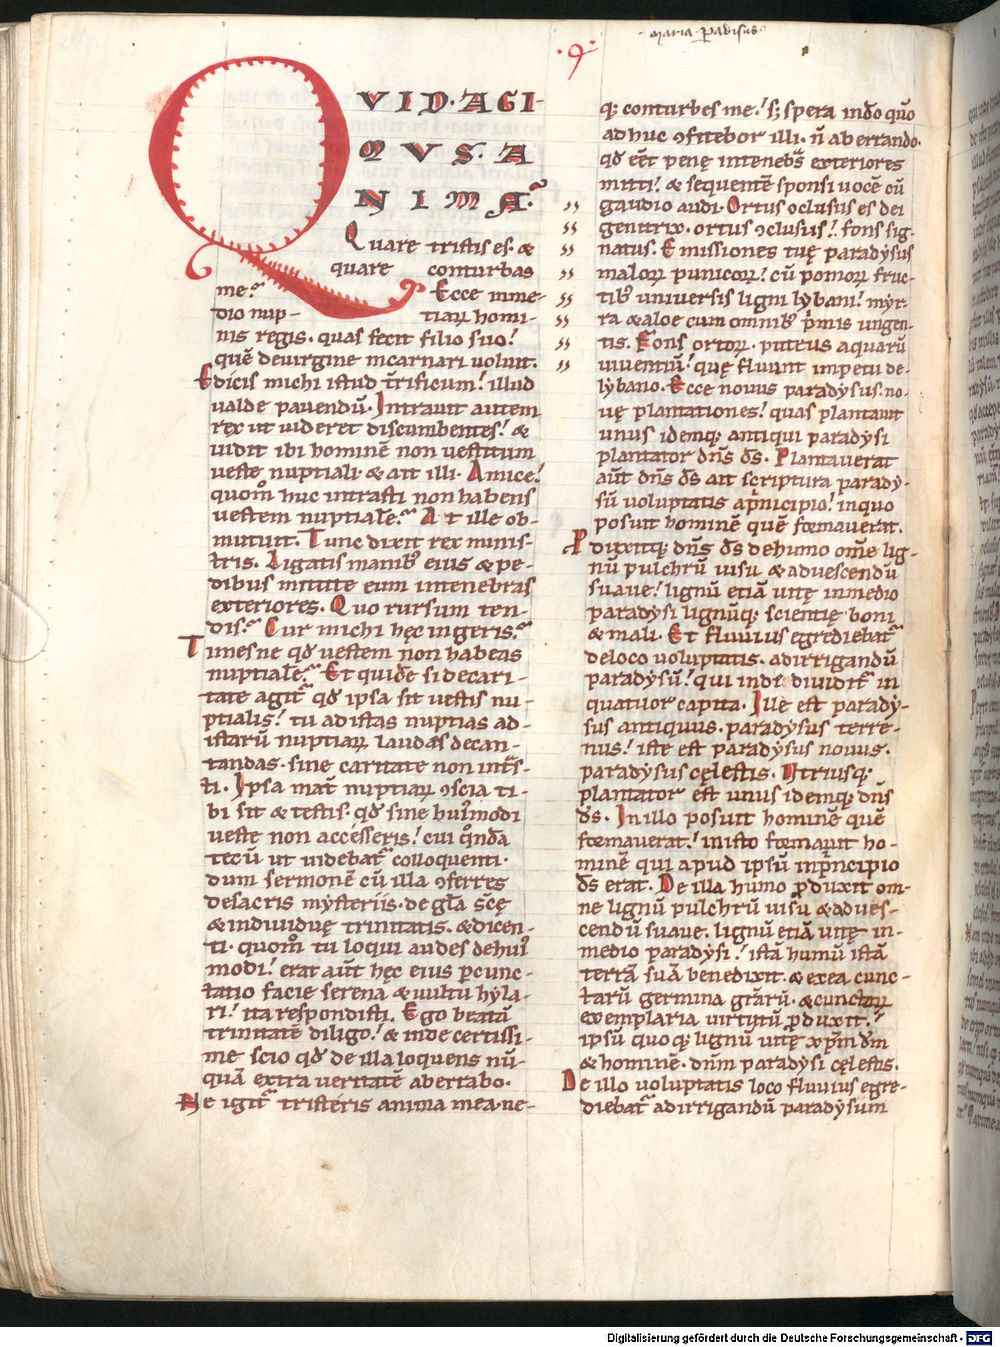 maria paradisus
9
QVID AGI-
MVS A
NIMA?
Quare tristis es. &
quare conturbas
me? Ecce inme-
dio nup- tiaꝝ homi-
nis regis. quas fecit filio suo!
quē deuirgine incarnari uoluit.
Edicis michi istud t̄rificum! illud
ualde pauendū. Intrauit autem
rex ut uideret discumbentes! &
uidit ibi hominē non uestitum
ueste nuptiali. & ait illi. Amice!
quom̊ huc intrasti non habens
uestem nuptialē? At ille ob-
mutuit. Tunc dixit rex minis-
tris. Ligatis manib; eius & pe-
dibus mittite eum intenebras
exteriores. Quo rursum ten-
dis? Cur michi hęc ingeris?
Timesne qđ uestem non habeas
nuptialē? Et quidē si decari-
tate agit̄ qđ ipsa sit uestis nu-
ptialis! tu adistas nuptias ad-
istarū nuptiaꝝ laudes decan-
tandas. sine caritate non int̄s-
ti. Ipsa mat̄ nuptiaꝝ ꝯscia ti-
bi sit & testis. qđ sine hui9modi
ueste non accesseris! cui qōnda
tecū ut uidebat̄ colloquenti.
dum sermonē cū illa ꝯferres
desacris mysteriis. de gl̄a sc̄ę
& indiuiduę trinitatis. & dicen-
ti. quom̊ tu loqui audes dehui9
modi! erat aut̄ hęc eius ꝑcunc-
tatio facie serena & uultu hyla-
ri! ita respondisti. Ego beatā
trinitatē diligo! & inde certissi-
me scio qđ de illa loquens nū-
quā extra ueritatē aberrabo.
Ne igit̄ tristeris anima mea. ne-
q; conturbes me! s; spera indō quō
adhuc ꝯfitebor illi. n̄ aberrando.
qđ eēt penę intenebs̄ exteriores
mitti! & sequentē sponsi uocē cū
gaudio audi. Ortus ꝯclusus es dei
genitrix. ortus ꝯclusus! fons sig-
natus. Emissiones tuę paradysus
maloꝝ punicoꝝ! cū pomoꝝ fruc-
tib; uniuersis ligni lybani! myr-
ra & aloe cum omnib; p̄mis ungen-
tis. Fons ortoꝝ. puteus aquarū
uiuentiū! quę fluunt impetu de-
lybano. Ecce nouus paradysus. no-
uę plantationes! quas plantauit
unus idemq; antiqui paradysi
plantator dn̄s ds̄. Plantauerat
aūt dn̄s ds̄ ait scriptura parady-
sū uoluptatis ap̄ncipio! inquo
posuit hominē quē formauerat.
Pduxitq; dn̄s ds̄ dehumo om̄e lig-
nū pulchrū uisu & aduescendū
suaue! lignū etiā uitę inmedio
paradysi lignūq; scientię boni
& mali. Et fluuius egrediebat̄
deloco uoluptatis. adirrigandū
paradysū! qui inde diuidit̄ in
quatuor capita. Ille est parady-
sus antiquus. paradysus terre-
nus! iste est paradysus nouus.
paradysus cęlestis. Utriusq;
plantator est unus idemq; dn̄s
ds̄. In illo posuit hominē quē
formauerat! inisto formauit ho-
minē qui apud ipsū inp̄ncipio
ds̄ erat. De illa humo ꝓduxit om-
ne lignū pulchrū uisu & adues-
cendū suaue. lignū etiā uitę in-
medio paradysi! istā humū istā
terrā suā benedixit. & exea cunc-
tarū germina grārū. & cunctaꝝ
exemplaria uirtutū ꝓduxit!
ipsū quoq; lignū uitę xp̄m dm̄
& hominē. dn̄m paradysi cęlestis.
De illo uoluptatis loco fluuius egre-
diebat̄ adirrigandū paradysum
Digitalisierung gefördert durch die Deutsche Forschungsgemeinschaft - DFG